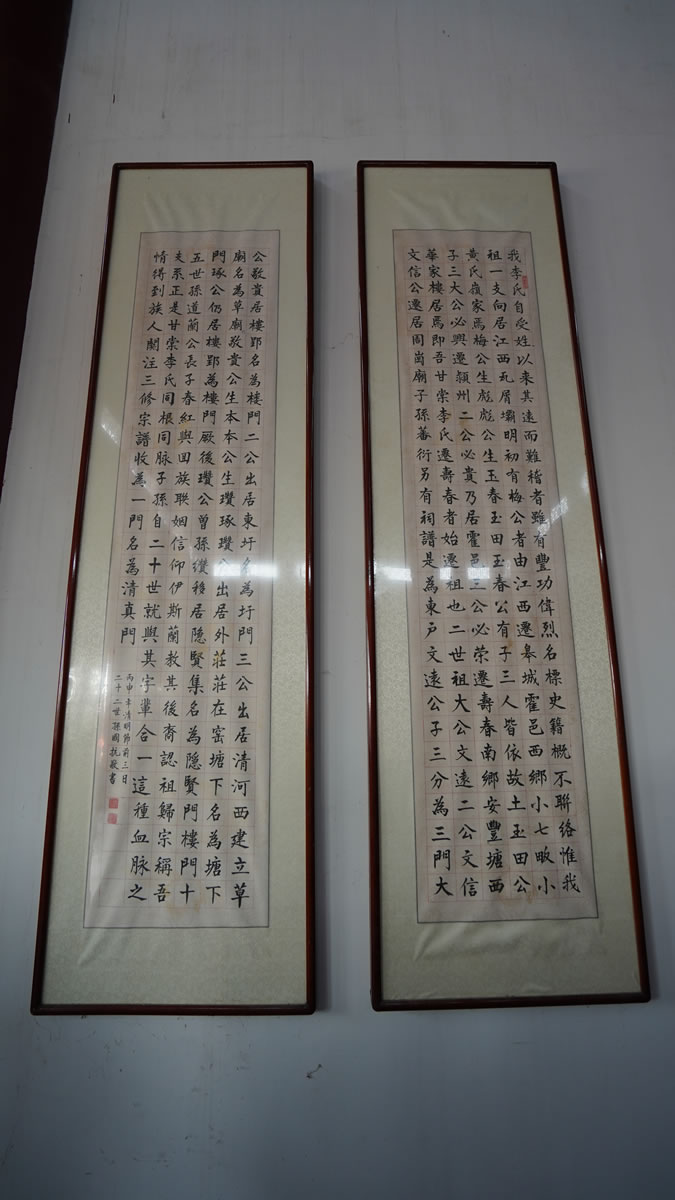 我李氏自受姓以来其遠而難稽者雖有豐功偉烈名標史籍概不聯絡惟我
祖一支向居江西瓦屑壩明初有梅公者由江西遷皋城霍邑西鄉小七畈小
黄氏嶺家焉梅公生彪彪公生玉春玉田玉春公有子三人皆依故土玉田公
子三大公必興遷潁州二公必貴乃居霍邑三公必荣遷壽春南鄉安豐塘西
華家樓居焉即吾甘棠李氏遷壽春者始遷祖也二世祖大公文遠二公文信
文信公遷居閻崗廟子孫蕃衍另有祠譜是為東戶文遠公子三分為三門大
公敬貴居樓郢名為樓門二公出居東圩名為圩門三公出居清河西建立草
廟名為草廟敬貴公生本本公生瓚琢瓚公出居外莊莊在窑塘下名為塘下
門琢公仍居樓郢為樓門厥後瓚公曾孫纘移居隐賢集名為隐賢門樓門十
五世孫道蘭公長子春紅與回族聯姻信仰伊斯蘭教其後裔認祖歸宗稱吾
支系正是甘棠李氏同根同脉子孫自二十世就與其字輩合一這種血脉之
情得到族人關注三修宗譜收為一門名為清真門
丙申年清明節前三日
二十二世孫國抗敬書